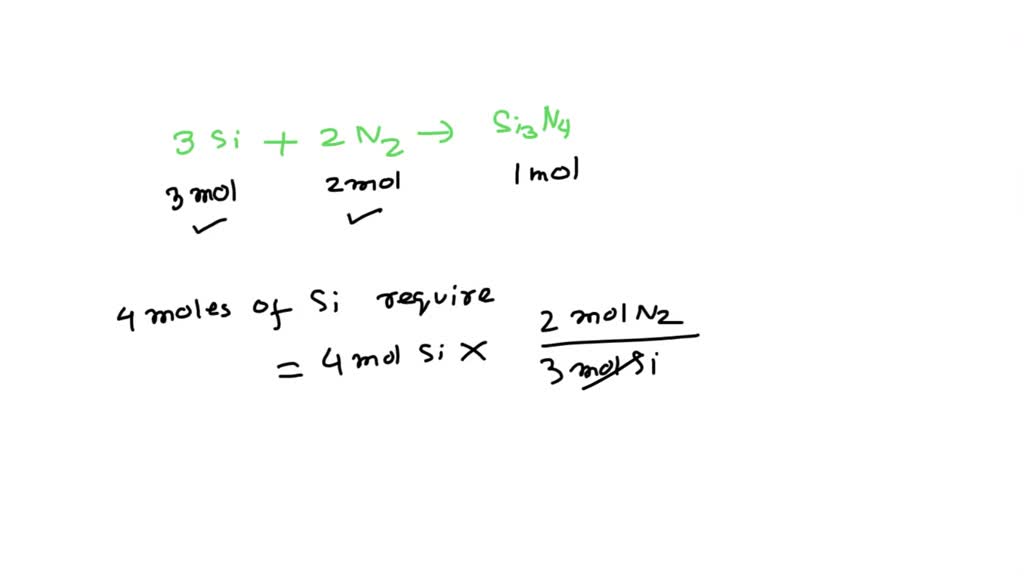 3 Si + 2 N₂ → Si₃N₄
3 mol 2 mol 1 mol
4 moles of Si require
= 4 mol Si × 2 mol N₂ / 3 mol Si